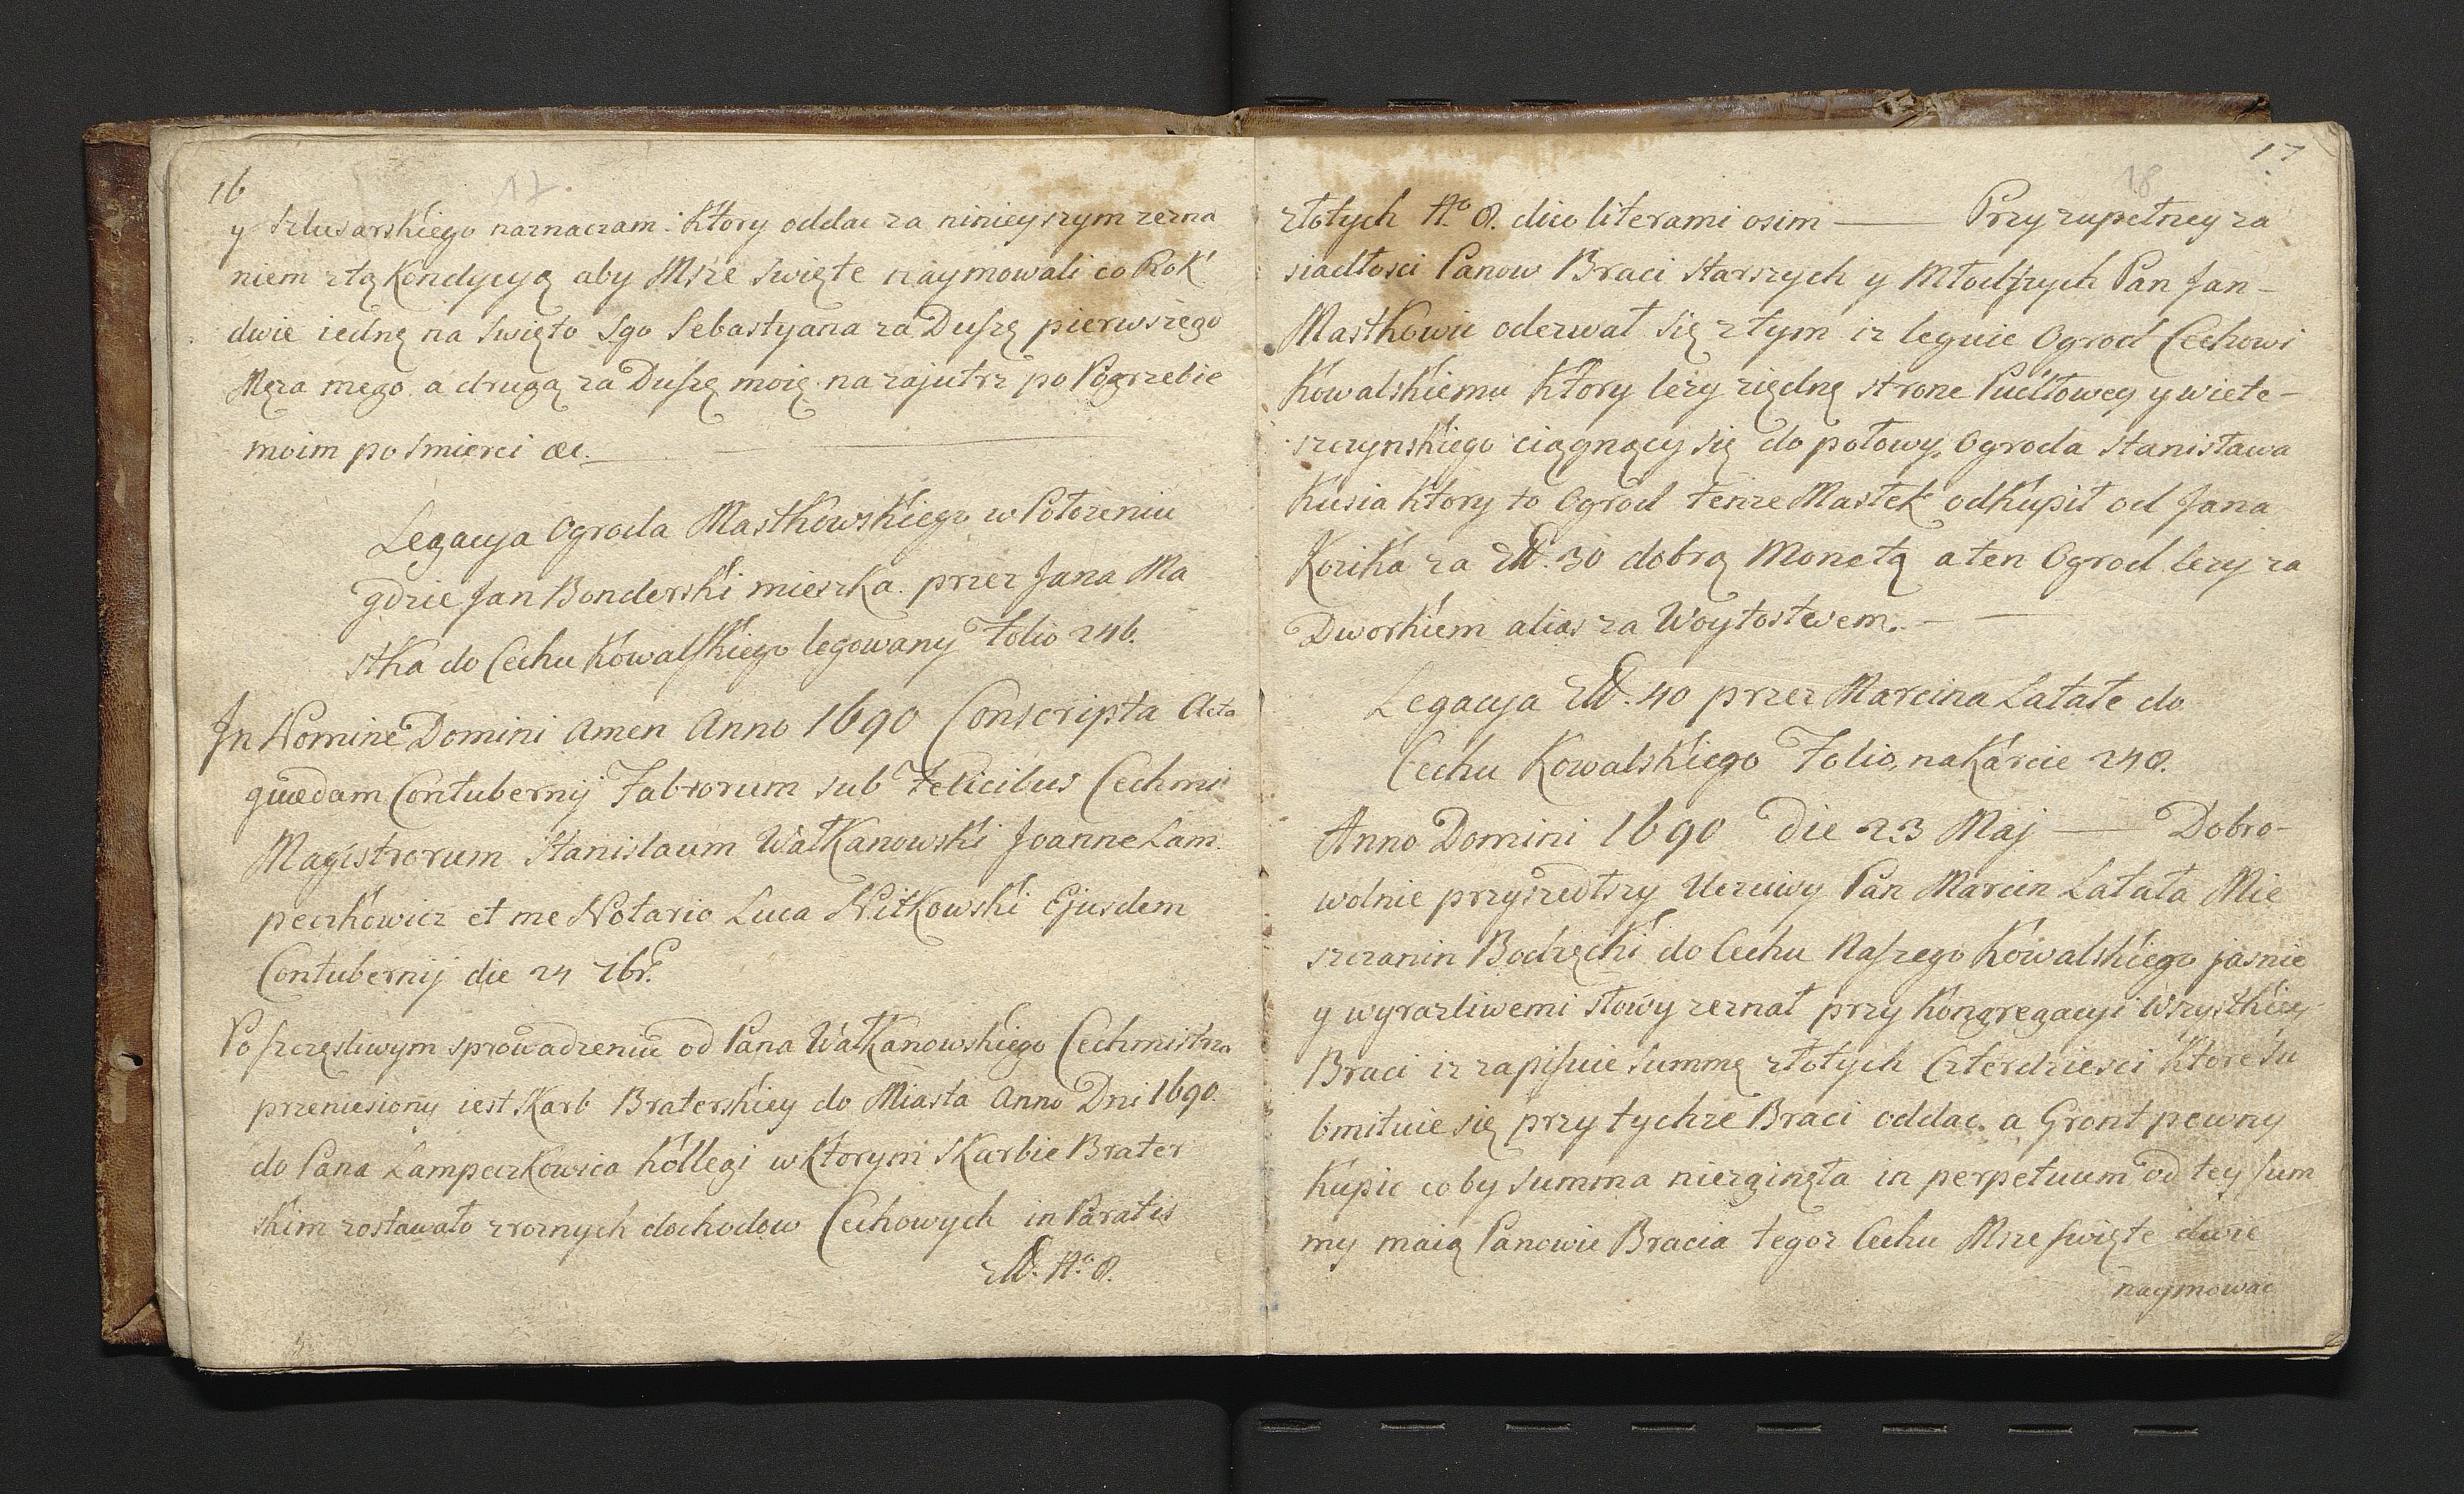 16
17
y Szlusarskiego naznaczam. Ktory oddac za ninieyszym zezna
niem ztą Kondycyą aby Msze święte naymowali co Rok
dwie iednę na święto Sgo Sebastyana za Duszę pierwszego
Męza mego a drugą za Duszę moię na zajutrz po Pogrzebie
moim po smierci &c.
Legacya Ogroda Mastkowskiego w Połozeniu
gdzie Jan Bonderski mieszka. przez Jana Ma
stka do Cechu Kowalskiego legowany Folio 246.
In Nomine Domini Amen Anno 1690 Conscripta Acta
quædam Contubernij Fabrorum sub Felicibus Cechmi
Magistrorum Stanislaum Wałkanowski Joanne Lam
peczkowicz et me Notario Luca Nitkowski Ejusdem
Contubernij die 24 zbr̃.
Po szczęsliwym sprowadzeniu od Pana Wałkanowskiego Cechmistrza
przeniesiony iest Skarb Braterskiey do Miasta Anno Dni 1690.
do Pana Lampeczkowica Kollegi w Ktorym Skarbie Brater
skim zostawało zroznych dochodow Cechowych in Paratis
zł. No 8.
17
18
złotych No 8. dico literami osim — Przy zupełney za
siadłosci Panow Braci starszych y Młodszych Pan Jan
Mastkowic odezwał się ztym iz leguie Ogrod Cechowi
Kowalskiemu Ktory lezy ziędnę strone Pudłoweg y wiete-
szczynskiego ciągnący się do połowy. Ogroda Stanisława
Kusia Ktory to Ogrod tenze Mastek odkupił od Jana
Kozika za zł. 30 dobrą Monetą a ten Ogrod lezy za
Dworkiem alias za Woytostwem. —
Legacya zł. 40 przez Marcina Latałe do
Cechu Kowalskiego Folio, na Karcie 248.
Anno Domini 1690 Die 23 Maj — Dobro-
wolnie przyszedłszy Uczciwy Pan Marcin Latała Mie
szczanin Bodzęcki do Cechu Naszego Kowalskiego jasnie
y wyrazliwemi słowy zeznał przy Kongregacyi Wszystkiey
Braci iz zapisuie Summę złotych Czterdziesci Ktore Su
bmituie się przy tychze Braci oddac. a Gront pewny
Kupic coby Summa niezginęła in perpetuum od tey Sum
my maią Panowie Bracia tegoz Cechu Msze święte dwie
naymowac